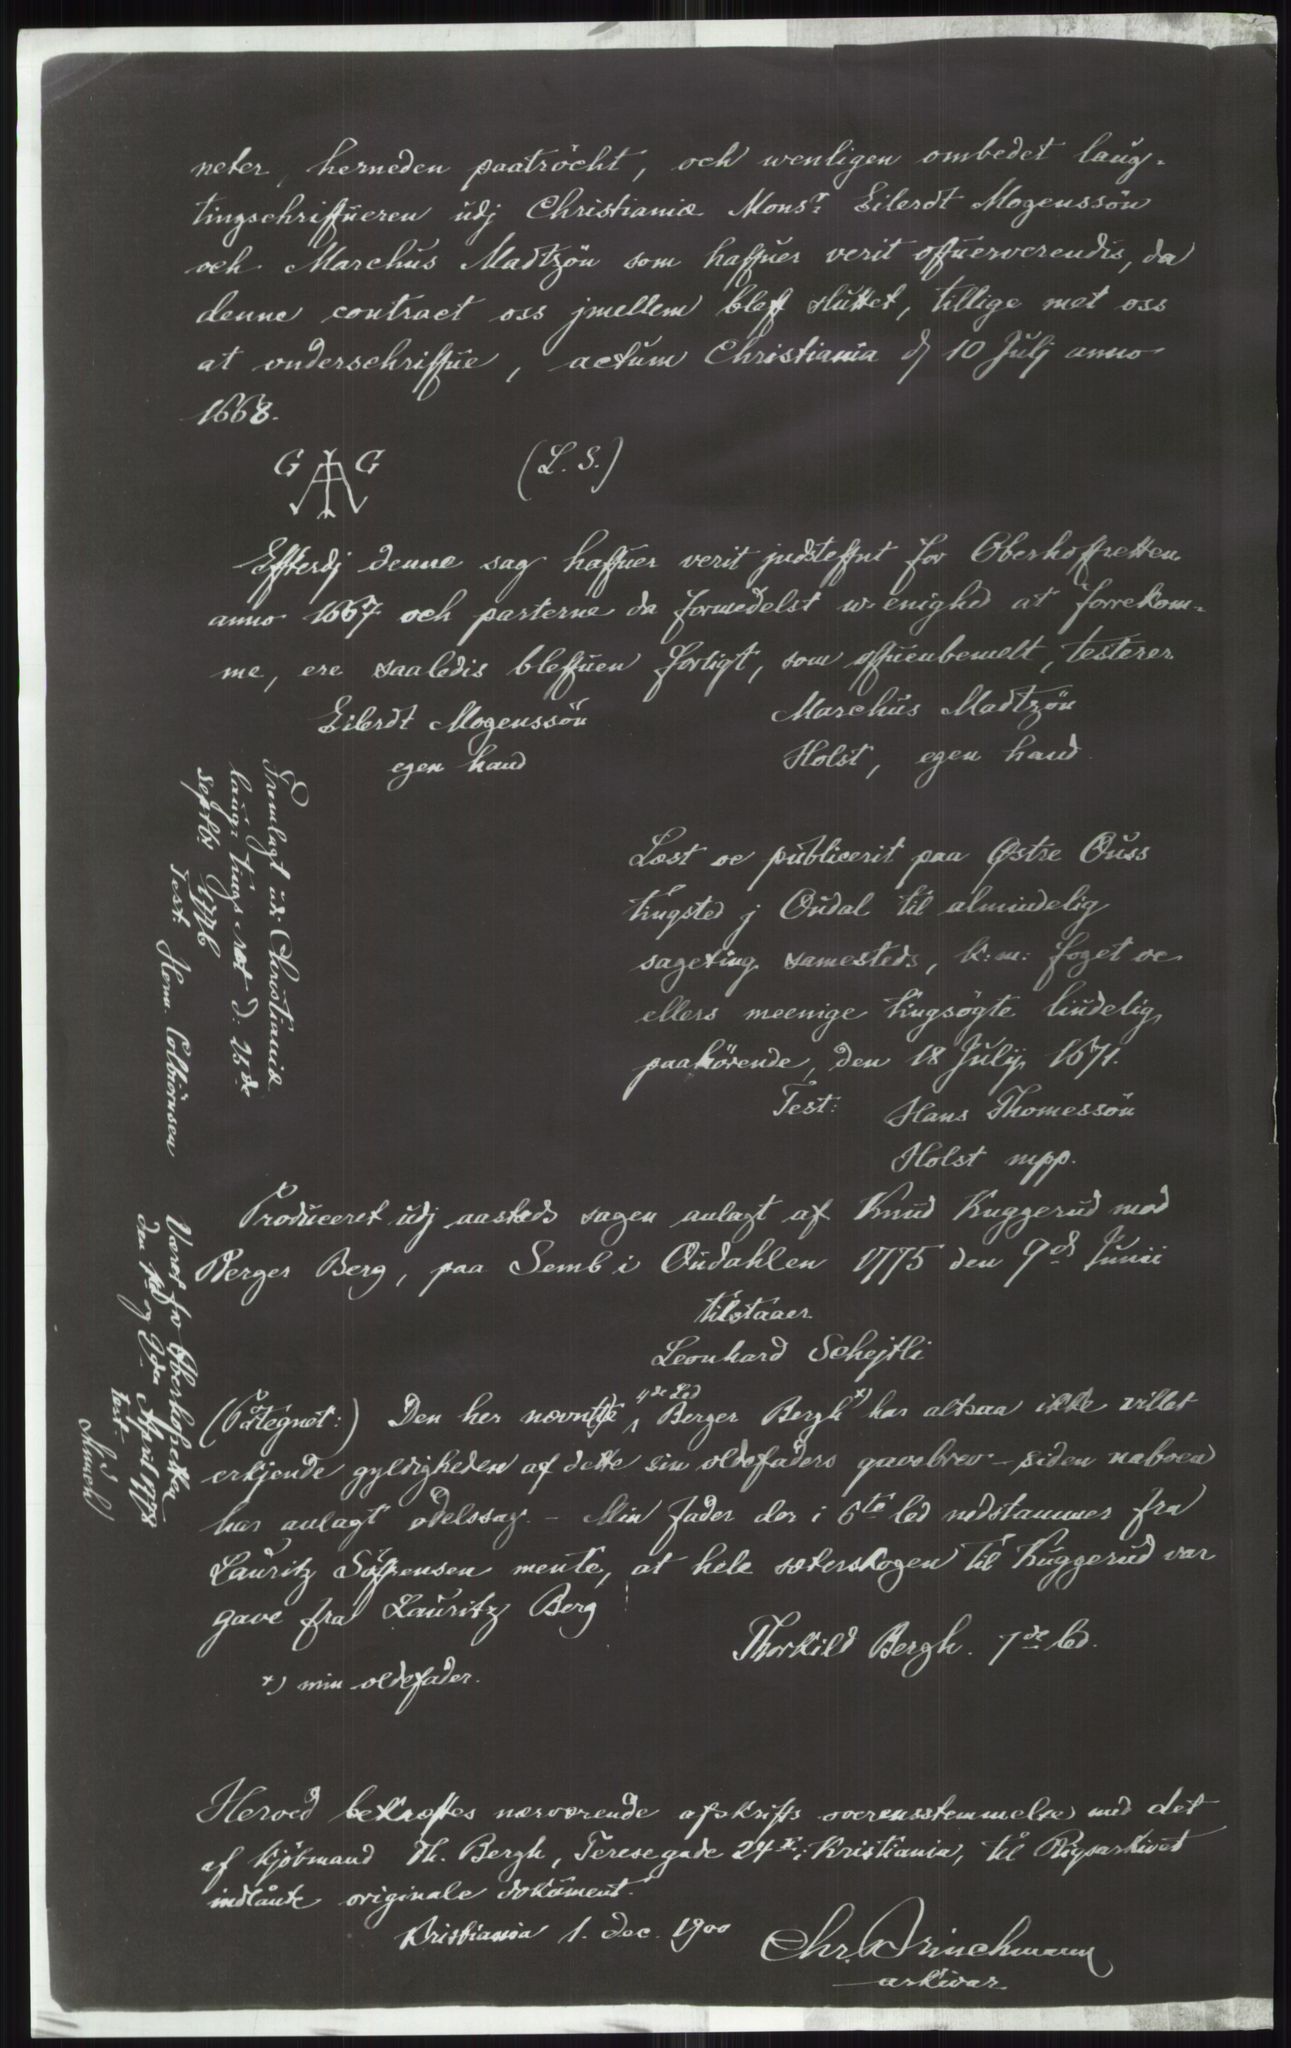 neter, herneden paatröcht, och wenligen ombedet laug-
tingschriffueren udj Christianiæ Mons:r Eilerdt Mogenssön
och Marchus Madtzön som haffuer verit offuerverendis, da
denne contract oss jmellem bleff sluttet, tillige met oss
at vnderschriffue, actum Christiania d 10 Julj anno
1668.
G G (L. S.)
Efterdj denne sag haffuer verit jndsteffnt for Oberhoffretten
anno 1667 och parterne da formedelst w-enighed at forrekom-
me, ere saaledis bleffuen forligt, som offuenbemelt, testerer
Eilerdt Mogenssön
egen hand
Marchus Madtzön
Holst, egen hand
Fremlagt udi Christianiæ
laug-tings ret d: 25de
Septbr 1776
Test: Herm. Colbiörnsen
Læst oc publicerit paa Østre Ouss
tingsted j Oudal til almindelig
sageting samesteds, k: m: foget oc
ellers meenige tingsøgte liudelig
paahörende, den 18 Julij 1671.
Test: Hans Thomessön
Holst mpp.
Været for Oberhofretten
den 1st og 9den April 1778
test:
Munch
Produceret udj aasteds sagen anlagt af Knud Kuggerud mod
Berger Berg, paa Semb i Oudahlen 1775 den 9de Junii
tilstaaer
Leonhard Schejtli
(Påtegnet:) Den her nævnte 4de Led Berger Bergh x) har altsaa ikke villet
erkjende gyldigheden af dette sin oldefaders gavebrev - siden naboen
har anlagt odelssag. - Min fader der i 6te led nedstammer fra
Lauritz Söfrensen mente, at hele sæterskogen til Kuggerud var
gave fra Lauritz Berg!
Thorkild Bergh. 7de led.
x) min oldefader.
Herved bekræftes nærværende afskrifts overensstemmelse med det
af kjöbmand Th. Bergh, Terese gade 24 II i Kristiania, til Rigsarkivet
indlånte originale dokument.
Kristiania 1. dec. 1900
Chr. Brinchmann
arkivar